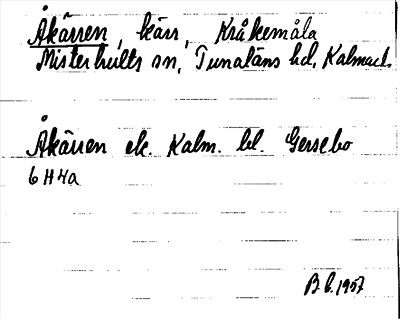 Åkärren, kärr, Kråkemåla
Misterhults sn, Tunaläns hd, Kalmar l.
Åkärren ek. Kalm. bl. Gersebo
6 H 4a
B b. 1957